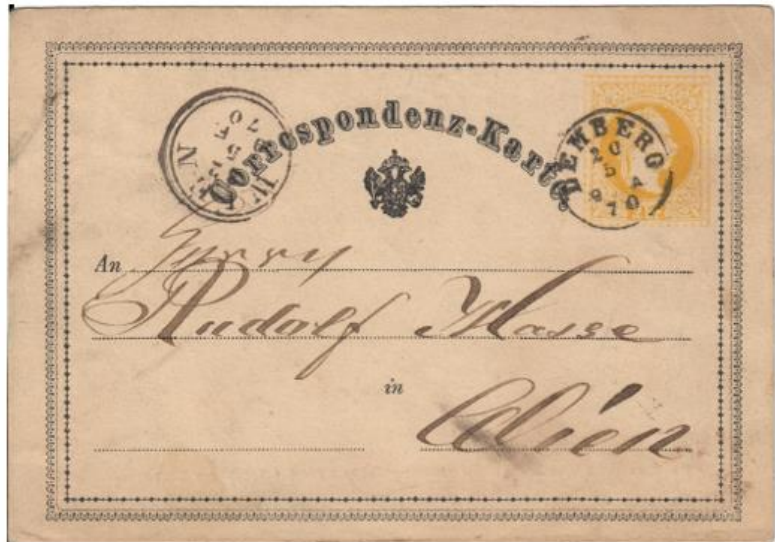 Correspondenz-Karte.
WIEN
70
LEMBERG
20
5
70
An Herrn
Rudolf Mosse
in
Wien